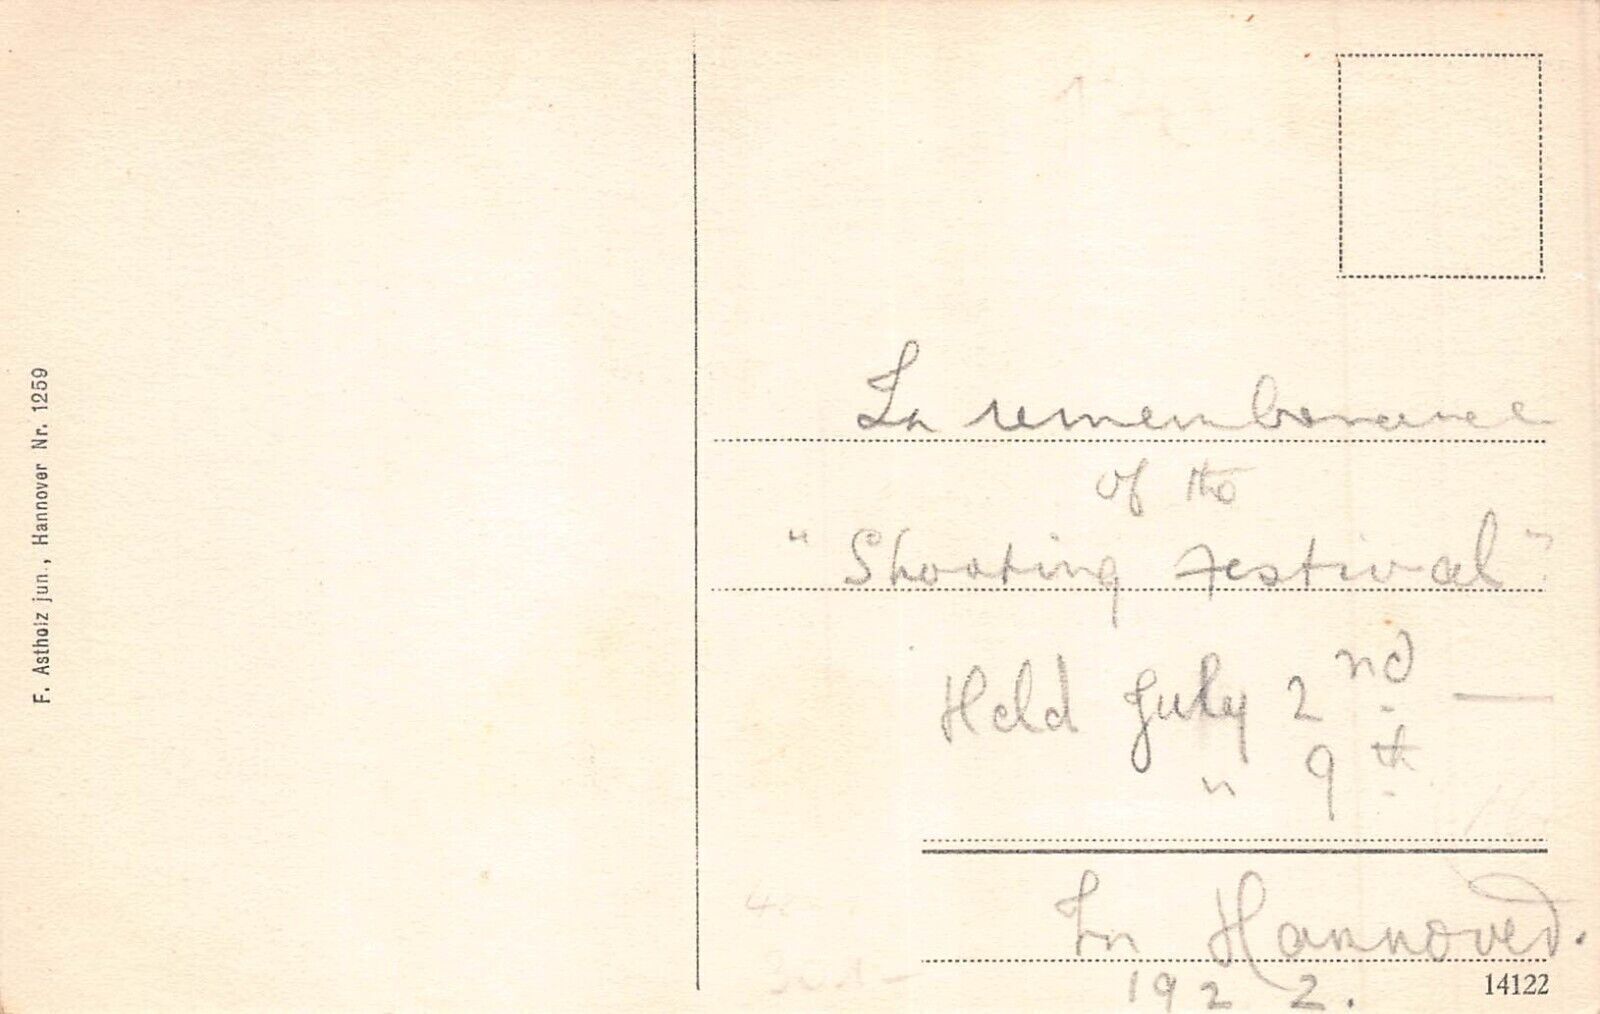 F. Astholz jun., Hannover Nr. 1259
In rememberance
of the
"Shooting Festival"
Held July 2nd —
" 9th
In Hannover.
1922.
14122